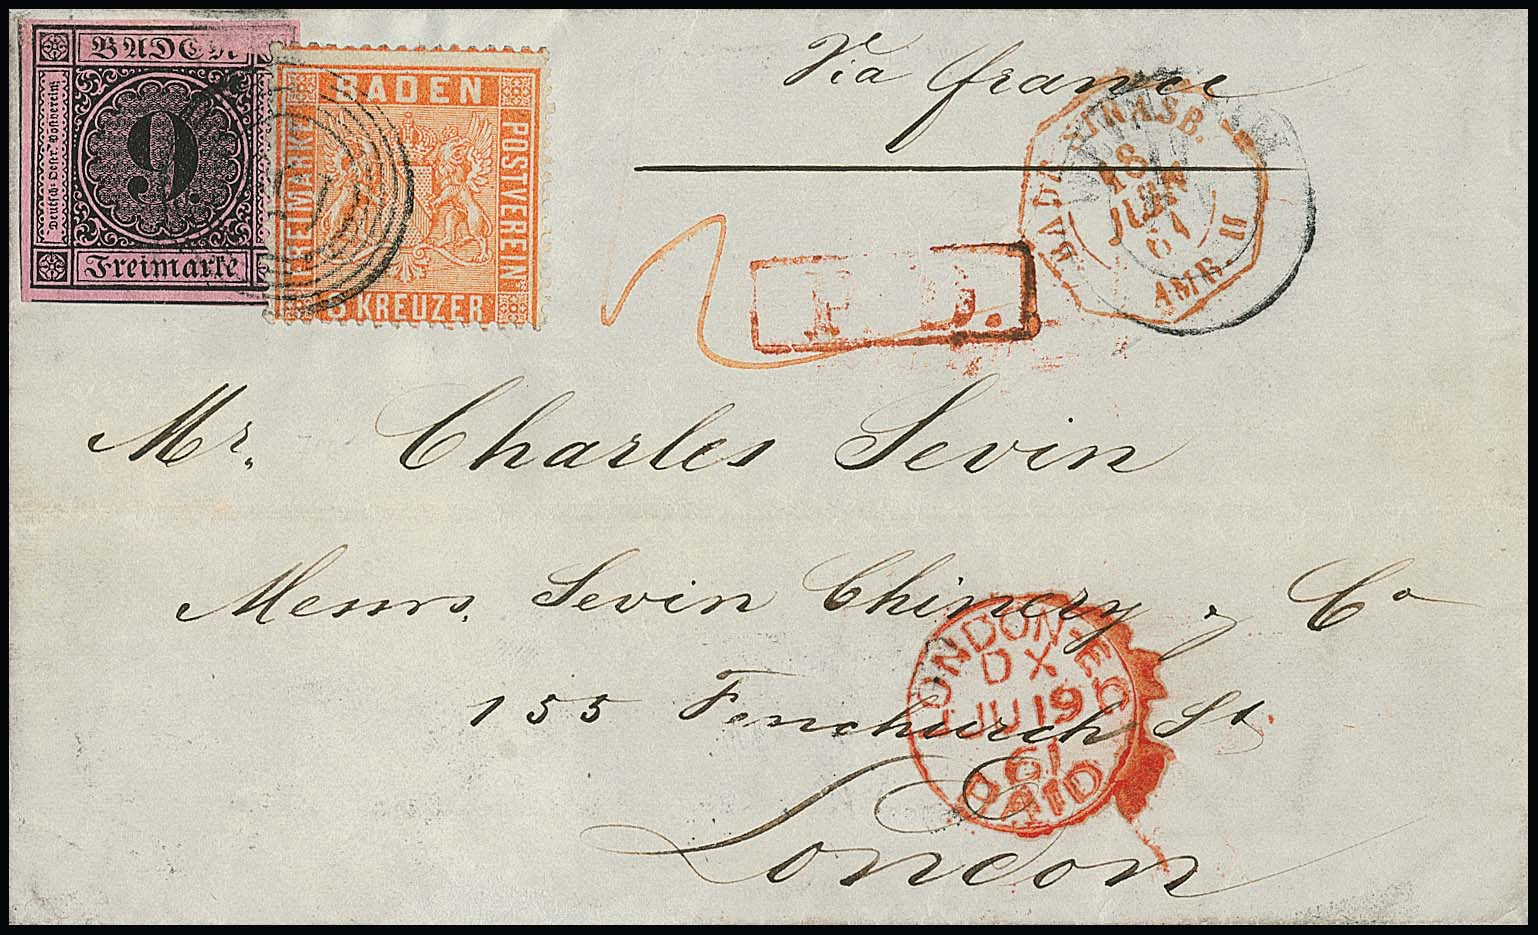 BADEN
Deutsch. Oester. Postverein
9.
Freimarke
BADEN
FREIMARKE
POSTVEREIN
3 KREUZER
Via france
STRASB.
18
JUIN
61
AMB. II
P. D.
Mr. Charles Sevin
Messrs. Sevin Chinery & Co
155 Fenchurch St.
London
LONDON-EC
DX
JU 19
61
PAID